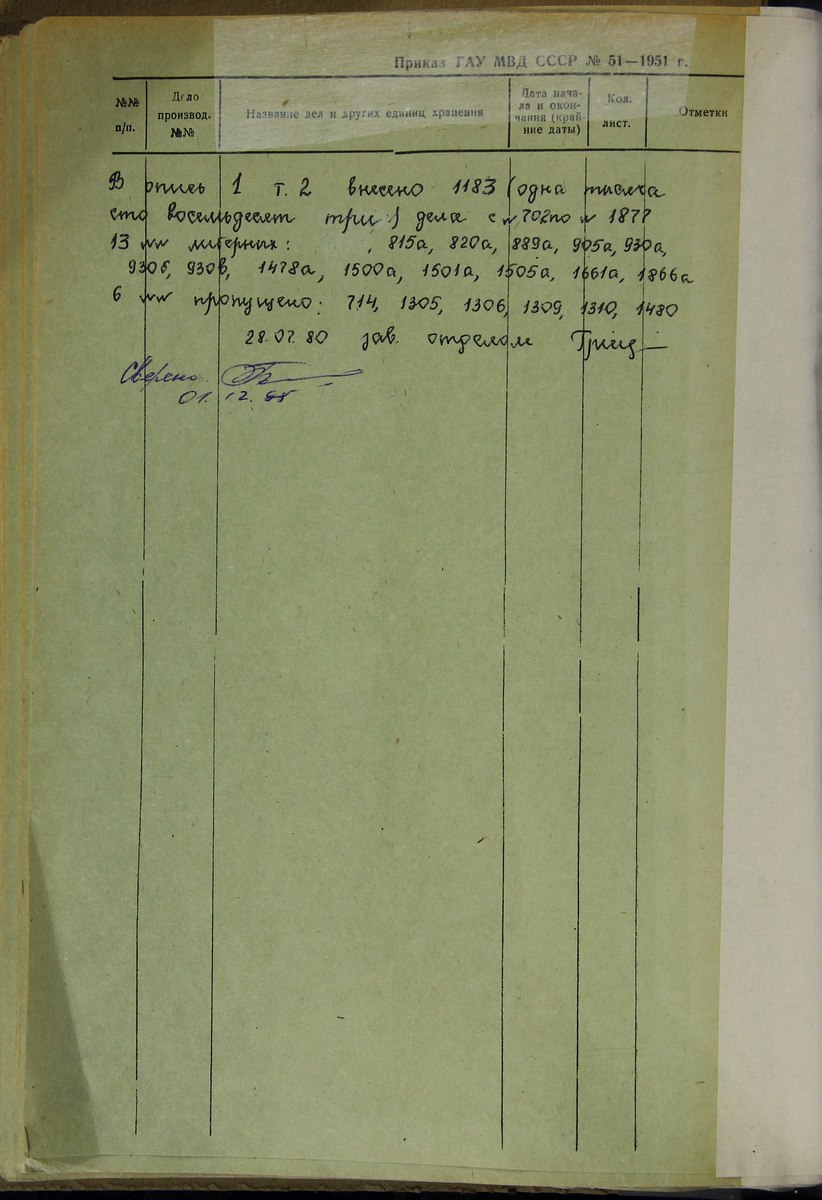 Приказ ГАУ МВД СССР № 51—1951 г.
№№ п/п.
Дело производ. №№
Название дел и других единиц хранения
Дата нача-
ла и окон-
чания (край-
ние даты)
Кол. лист.
Отметки
В опись 1 т. 2 внесено 1183 (одна тысяча
сто восемьдесят три) дела с № 702 по № 1877
13 №№ литерных: , 815а, 820а, 889а, 905а, 930а,
930б, 930в, 1478а, 1500а, 1501а, 1505а, 1661а, 1866а
6 №№ пропущено: 714, 1305, 1306, 1309, 1310, 1480
28.07.80 зав. отделом
Сверено.
01.12.